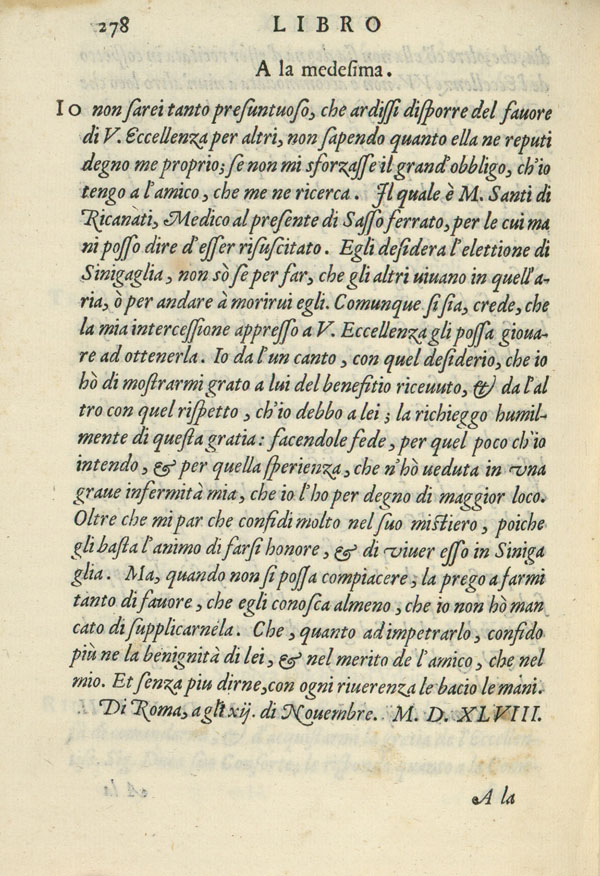 278 LIBRO
A la medesima.
IO non sarei tanto presuntuoso, che ardissi disporre del fauore
di V. Eccellenza per altri, non sapendo quanto ella ne reputi
degno me proprio; se non mi sforzasse il grand'obbligo, ch'io
tengo a l'amico, che me ne ricerca. Il quale è M. Santi di
Ricanati, Medico al presente di Sasso ferrato, per le cui ma
ni posso dire d'esser risuscitato. Egli desidera l'elettione di
Sinigaglia, non sò se per far, che gli altri uiuano in quell'a-
ria, ò per andare à morirui egli. Comunque si sia, crede, che
la mia intercessione appresso a V. Eccellenza gli possa gioua-
re ad ottenerla. Io da l'un canto, con quel desiderio, che io
hò di mostrarmi grato a lui del benefitio riceuuto, & da l'al
tro con quel rispetto, ch'io debbo a lei; la richieggo humil-
mente di questa gratia: facendole fede, per quel poco ch'io
intendo, & per quella sperienza, che n'hò ueduta in vna
graue infermità mia, che io l'ho per degno di maggior loco.
Oltre che mi par che confidi molto nel suo mistiero, poiche
gli basta l'animo di farsi honore, & di viuer esso in Siniga
glia. Ma, quando non si possa compiacere; la prego a farmi
tanto di fauore, che egli conosca almeno, che io non hò man
cato di supplicarnela. Che, quanto ad impetrarlo, confido
più ne la benignità di lei, & nel merito de l'amico, che nel
mio. Et senza piu dirne, con ogni riuerenza le bacio le mani.
Di Roma, a gli xij. di Nouembre. M. D. XLVIII.
A la